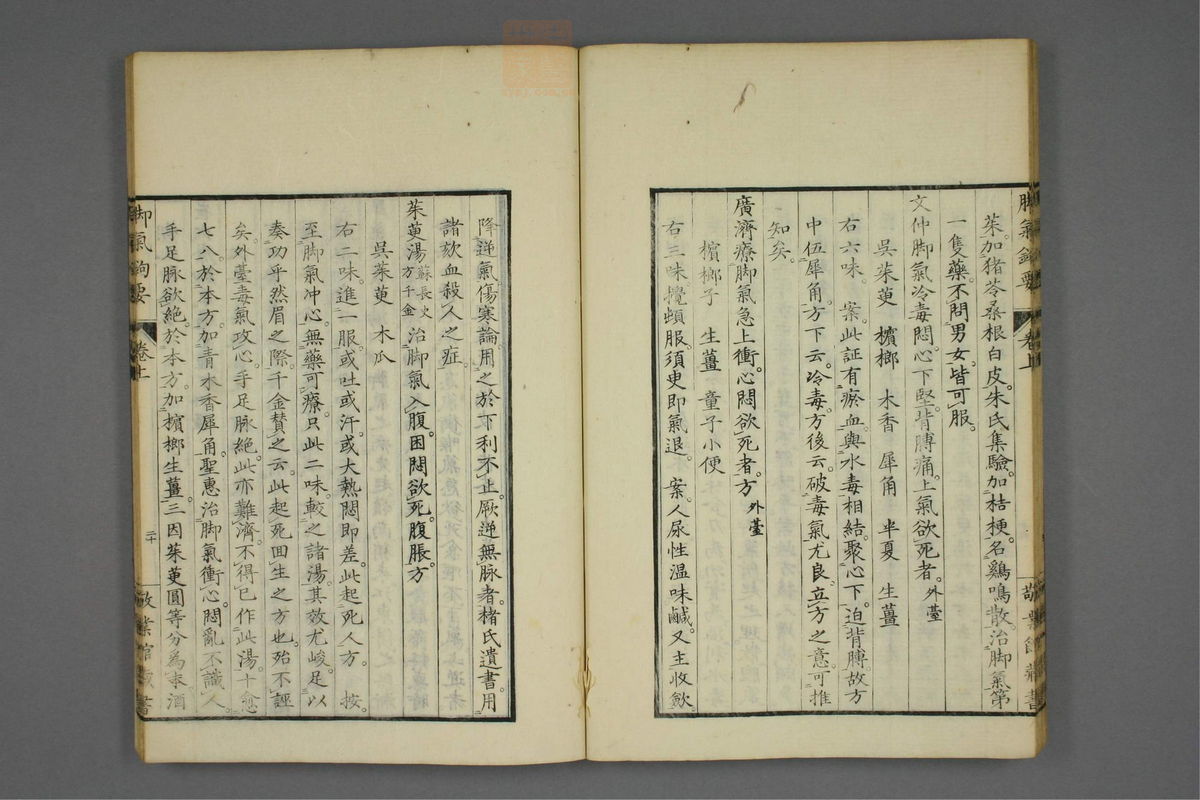 脚氣鉤要 卷上
茱加猪苓桑根白皮朱氏集驗加桔梗名鷄鳴散治脚氣第
一隻藥不問男女皆可服
文仲脚氣冷毒悶心下堅背膊痛上氣欲死者外臺
吳茱萸 檳榔 木香 犀角 半夏 生薑
右六味 案此証有瘀血與水毒相結聚心下迫背膊故方
中伍犀角方下云冷毒方後云破毒氣尤良立方之意可推
知矣
廣濟療脚氣急上衝心悶欲死者方外臺
檳榔子 生薑 童子小便
右三味攪頓服須臾即氣退 案人尿性溫味鹹又主收斂
降逆氣傷寒論用之於下利不止厥逆無脉者褚氏遺書用
諸欬血殺人之症
茱萸湯蘇長史方千金治脚氣入腹困悶欲死腹脹方
吳茱萸 木瓜
右二味進一服或吐或汗或大熱悶即差此起死人方 按
至脚氣冲心無藥可療只此二味較之諸湯其效尤峻足以
奏功乎然眉之際千金賛之云此起死回生之方也殆不誣
矣外臺毒氣攻心手足脉絶此亦難濟不得已作此湯十愈
七八於本方加青木香犀角聖惠治脚氣衝心悶亂不識人
手足脉欲絶於本方加檳榔生薑三因茱萸圓等分為末酒
脚氣鉤要 卷上 二十